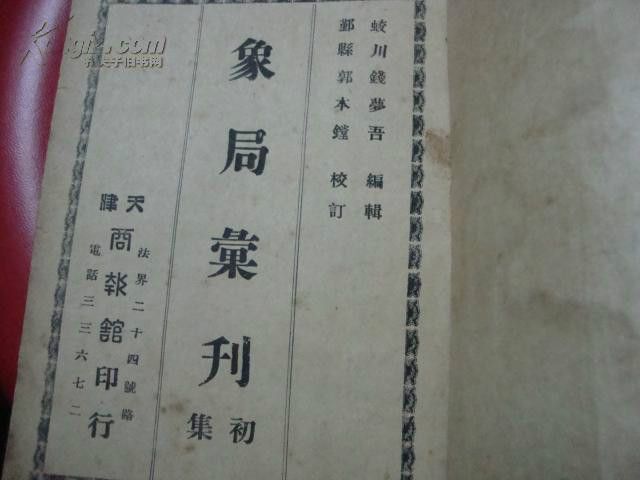 蛟川錢夢吾 編輯
鄞縣郭本鏜 校訂
象局彙刊
初集
天津
商報館印行
法界二十四號路
電話三三六七二
孔夫子旧书网